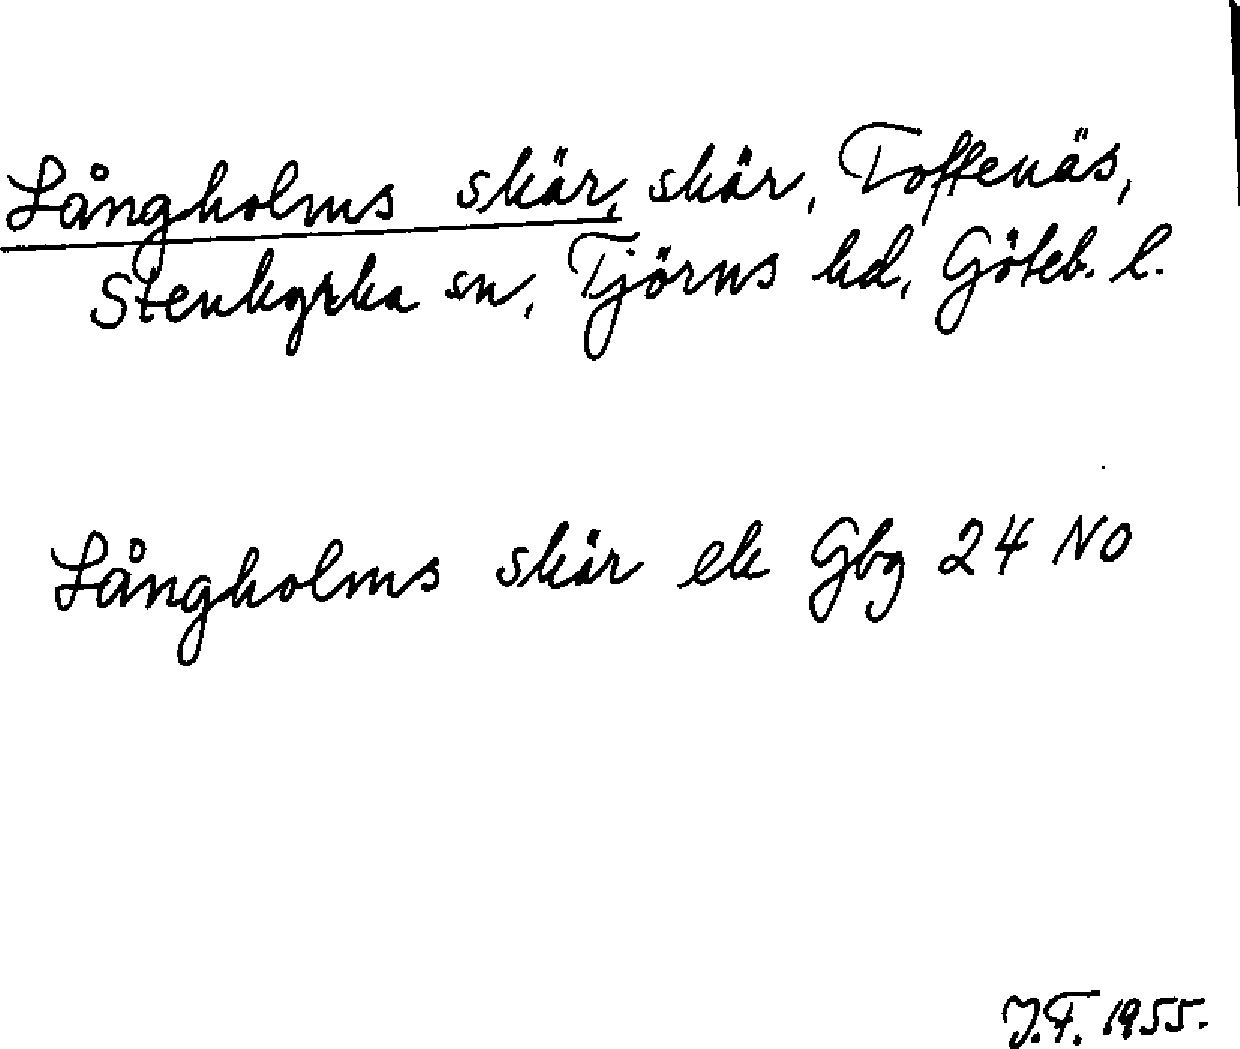 Långholms skär, skär, Toftenäs,
Stenkyrka sn, Tjörns hd, Göteb. l.
Långholms skär ek Gbg 24 NO
J.F. 1955.